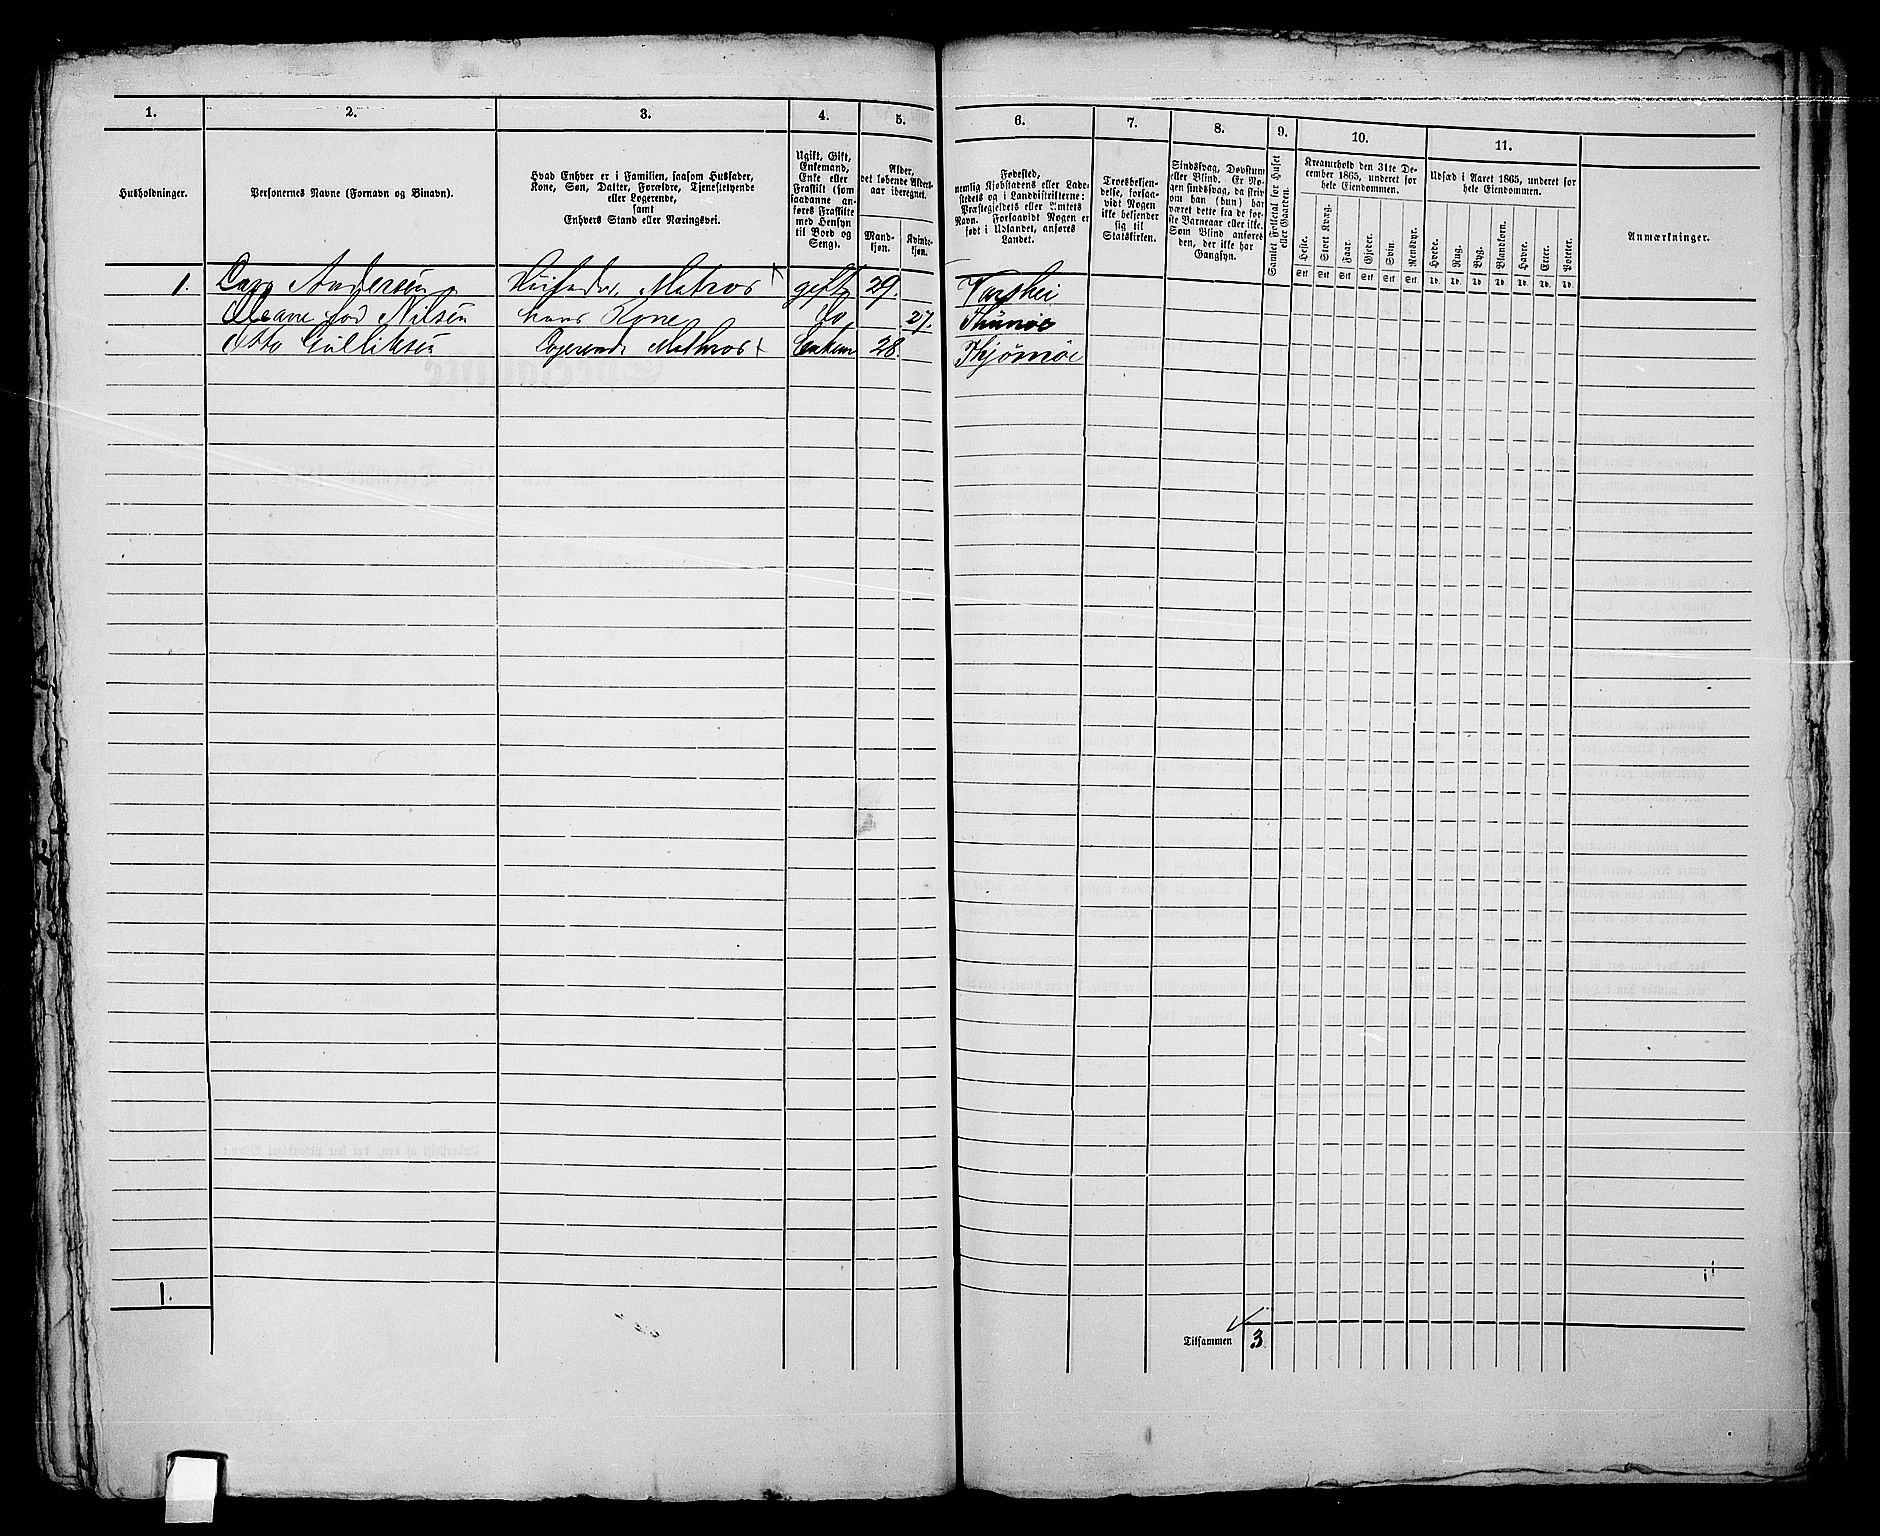 1. 2. 3. 4. 5. 6. 7. 8. 9. 10. 11.
Husholdninger.
Personernes Navne (Fornavn og Binavn).
Hvad Enhver er i Familien, saasom Husfader,
Kone, Søn, Datter, Forældre, Tjenestetyende
eller Logerende,
samt
Enhvers Stand eller Næringsvei.
Ugift, Gift,
Enkemand,
Enke eller
Fraskilt (som
saadanne an-
føres Fraskilte
med Hensyn
til Bord og
Seng).
Alder,
det løbende Alders-
aar iberegnet.
Mand-
kjøn.
Kvinde-
kjøn.
Fødested,
nemlig Kjøbstadens eller Lade-
stedets og i Landdistrikterne:
Præstegjeldets eller Amtets
Navn. Forsaavidt Nogen er
født i Udlandet, anføres
Landet.
Troesbekjen-
delse, forsaa-
vidt Nogen
ikke bekjender
sig til
Statskirken.
Sindssvag, Døvstum
eller Blind. Er No-
gen sindssvag, da skriv
om han (hun) har
været dette fra de før-
ste Barneaar eller ikke.
Som Blind anføres
den, der ikke har
Gangsyn.
Samlet Folketal for Huset
eller Gaarden.
Kreaturhold den 31te De-
cember 1865, underet for
hele Eiendommen.
Heste. Stort Kvæg. Faar. Gjeder. Svin. Rensdyr.
Stk Stk Stk Stk Stk Stk
Udsæd i Aaret 1865, underet for
hele Eiendommen.
Hvede. Rug. Byg. Blandkorn. Havre. Erter. Poteter.
Td. Td. Td. Td. Td. Td. Td.
Anmærkninger.
1. Andersen Matros gift 29.
Oleane fød Nilsen hans Kone do 27.
Otto Gulliksen Logerende Mathros 28. Thjømøe
1.
Tilsammen 3